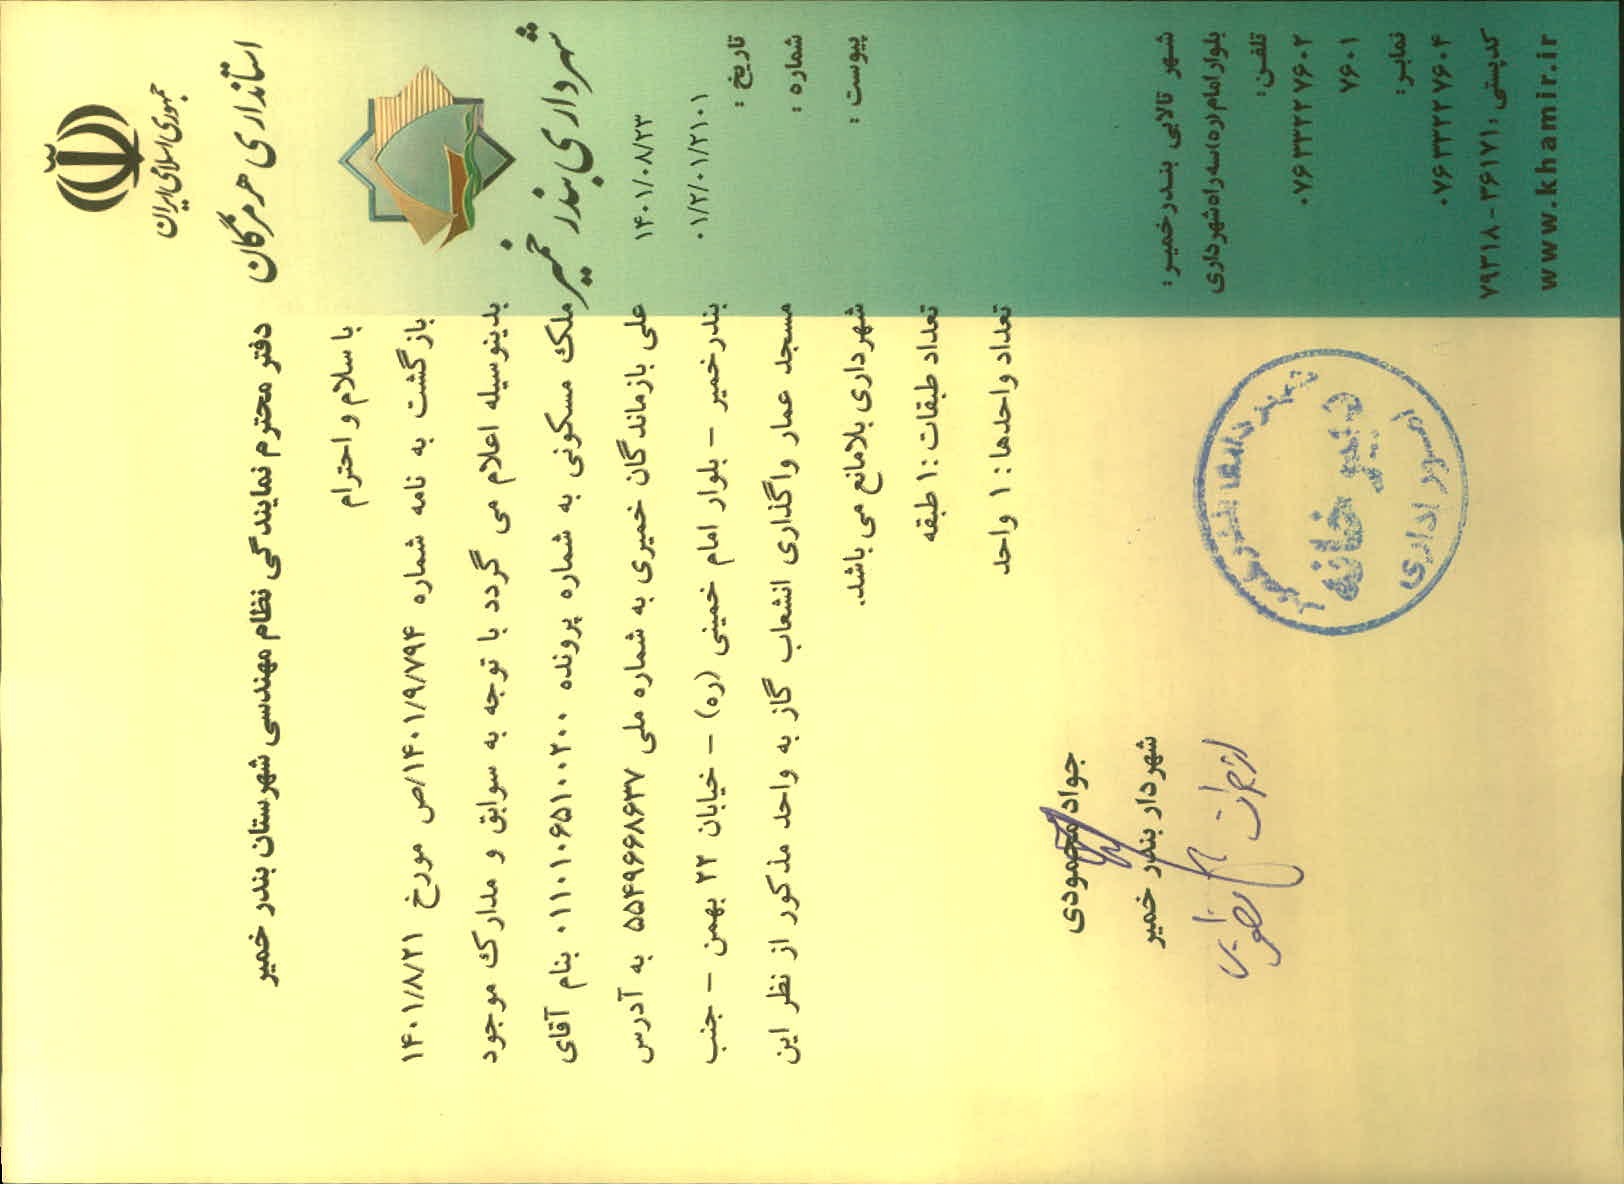 جمهوری اسلامی ایران
استانداری هرمزگان
شهرداری بندر خمیر
تاریخ : ۱۴۰۱/۰۸/۲۳
شماره : ۰۱/۲/۰۱/۲۱۰۱
پیوست :
دفتر محترم نمایندگی نظام مهندسی شهرستان بندر خمیر
با سلام و احترام
بازگشت به نامه شماره ۱۴۰۱/۹/۷۹۴/ص مورخ ۱۴۰۱/۸/۲۱
بدینوسیله اعلام می گردد با توجه به سوابق و مدارک موجود
ملک مسکونی به شماره پرونده ۰۱۱۰۱۰۶۵۱۰۰۲۰۰ بنام آقای
علی بازماندگان خمیری به شماره ملی ۵۵۴۹۶۶۸۶۳۷ به آدرس
بندرخمیر – بلوار امام خمینی (ره) – خیابان ۲۲ بهمن – جنب
مسجد عمار واگذاری انشعاب گاز به واحد مذکور از نظر این
شهرداری بلامانع می باشد.
تعداد طبقات :۱ طبقه
تعداد واحدها : ۱ واحد
جواد محمودی
شهردار بندر خمیر
دبیرخانه
امور اداری
شهر تالابی بندرخمیر:
بلوار امام(ره)سه راه شهرداری
تلفن:
۰۷۶۳۳۲۲۷۶۰۲
۷۶۰۱
نمابر:
۰۷۶۳۳۲۲۷۶۰۴
کدپستی : ۳۶۱۷۱ - ۷۹۳۱۸
www.khamir.ir